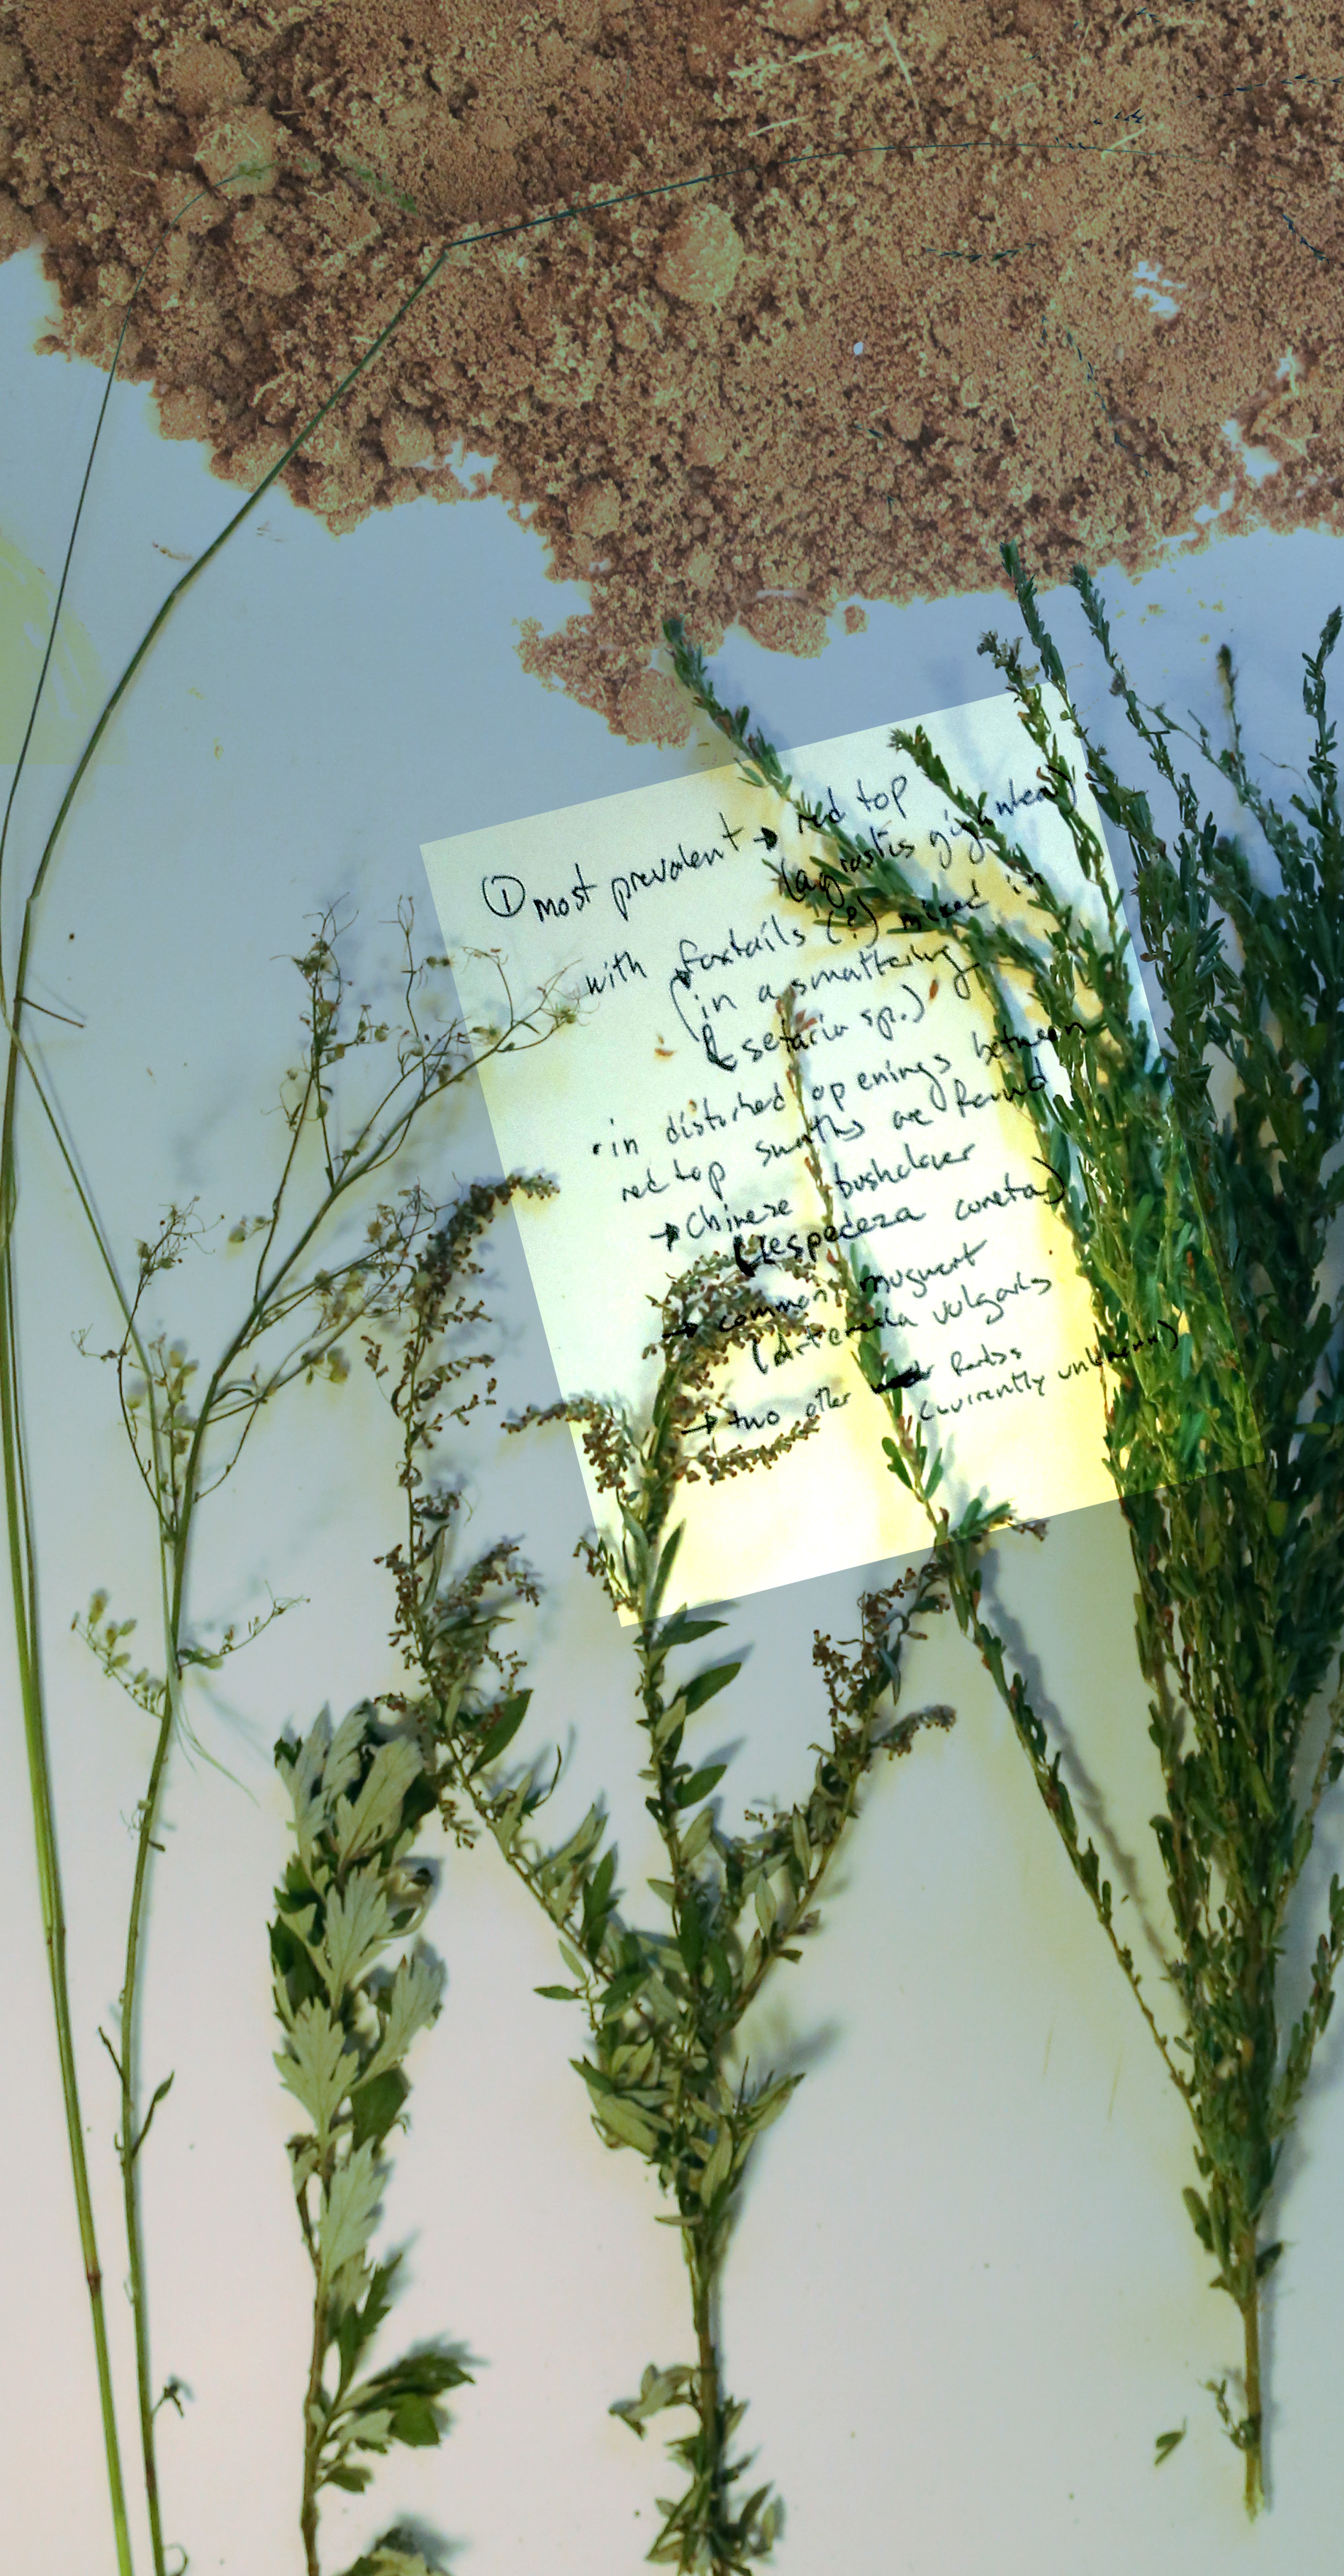 ① most prevalent → red top
(agrostis gigantea)
with foxtails (?) mixed in
(in a smattering
setaria sp.)
• in disturbed openings between
red top swaths are found
→ Chinese bushclover
(lespedeza cuneta)
→ common mugwort
(Artemesia vulgaris
→ two other forbs
(currently unknown)